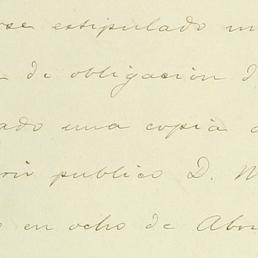 se estipulado
de obligacion d
ado una copia
publico D. M
en ocho de Abr